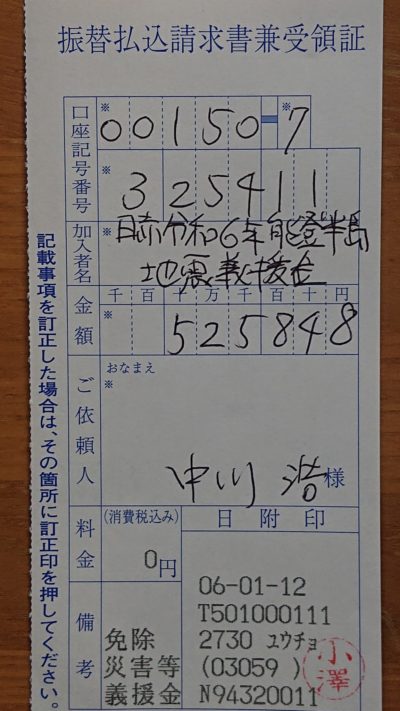 振替払込請求書兼受領証
口座記号番号
※
00150-7
※
※
325411
加入者名
※
日赤令和6年能登半島
地震義援金
金額
千百十万千百十円
※
525848
ご依頼人
おなまえ
※
中川 浩様
料金
(消費税込み)
0円
日附印
06-01-12
T501000111
2730 ユウチョ
(03059 )
N94320011
小澤
備考
免除
災害等
義援金
記載事項を訂正した場合は、その箇所に訂正印を押してください。